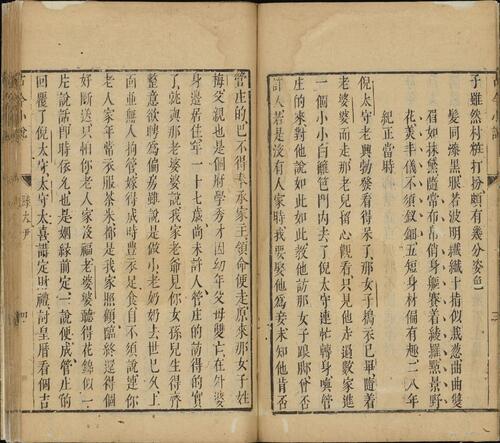 子雖然村粧打扮頗有幾分姿色
髮同漆黑眼若波明纖纖十指似栽葱曲曲雙
眉如抹黛隨常布帛俏身軀賽着綾羅點景野
花美丰儀不須釵鈿五短身材偏有趣二八年
紀正當時
倪太守老興勃發看得呆了那女子搗衣已畢隨着
老婆婆而走那老兒留心觀看只見他走過數家進
一個小小白籬笆門內去了倪太守連忙轉身喚管
庄的來對他說如此如此教他訪那女子跟脚曾否
許人若是沒有人家時我要娶他爲妾未知他肯否
管庄的巴不得奉承家主領命便走原來那女子姓
梅父親也是個府學秀才因幼年父母雙亡在外婆
身邊居住年一十七歲尚未許人管庄的訪得的實
了就與那老婆婆說我家老爺見你女孫兒生得齊
整意欲聘爲偏房雖說是做小老奶奶去世已久上
面並無人拘管嫁得成時豐衣足食自不須說連你
老人家年常衣服茶米都是我家照顧臨終還得個
好斷送只怕你老人家沒福老婆婆聽得花錦似一
片說話即時依允也是姻緣前定一說便成管庄的
回覆了倪太守太守大喜講定財禮討皇曆看個吉
古今小說
滕大尹
四
三